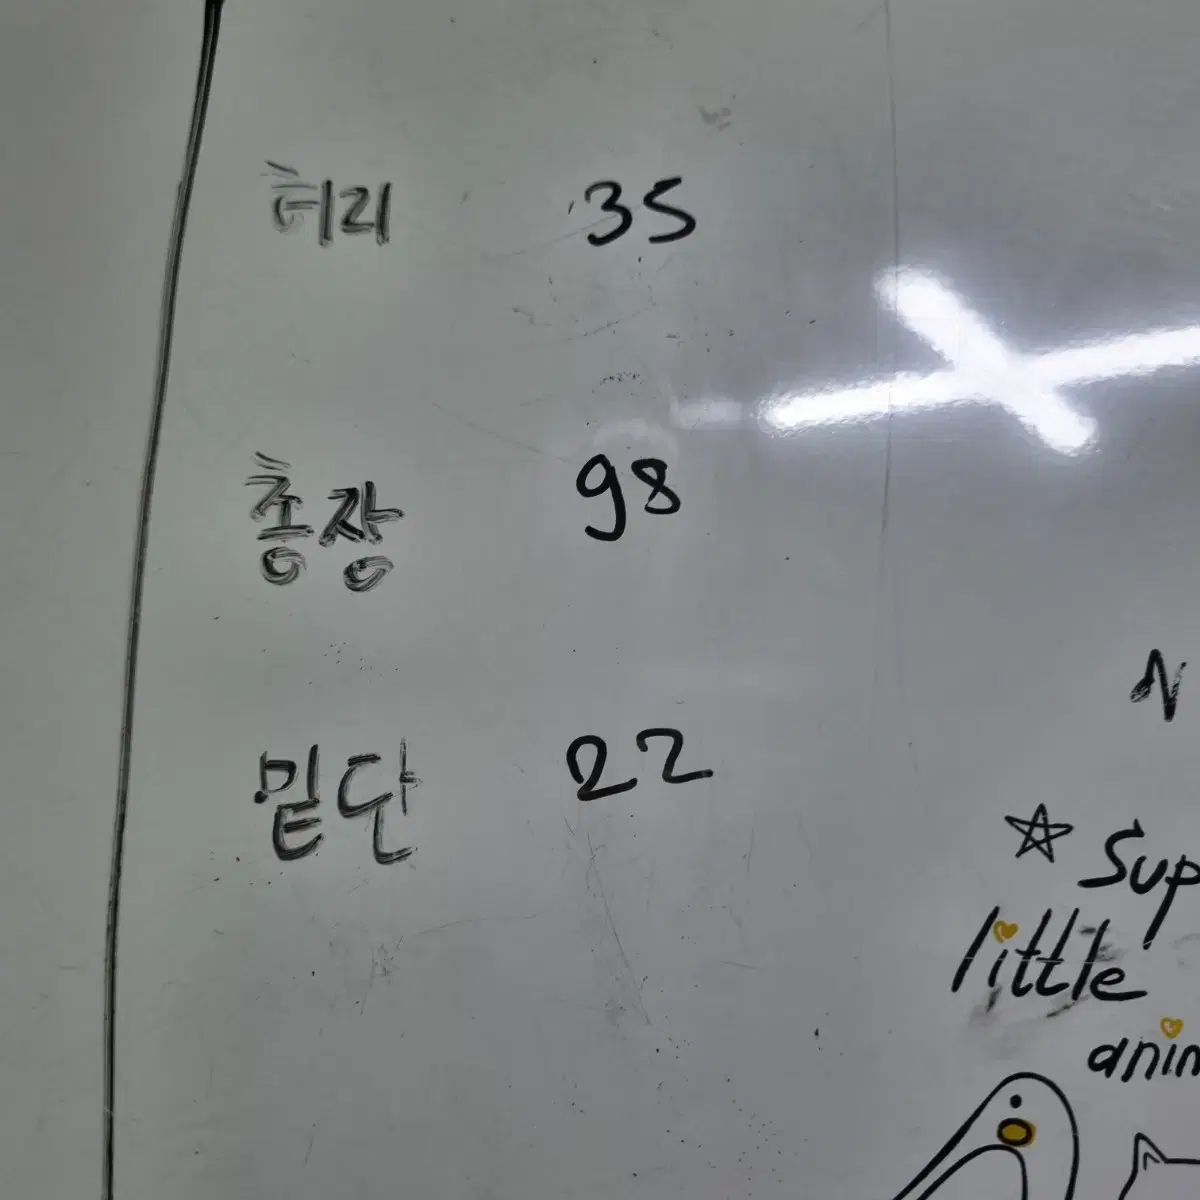 허리 35
총장 98
밑단 22
N
☆ Sup
little
anim